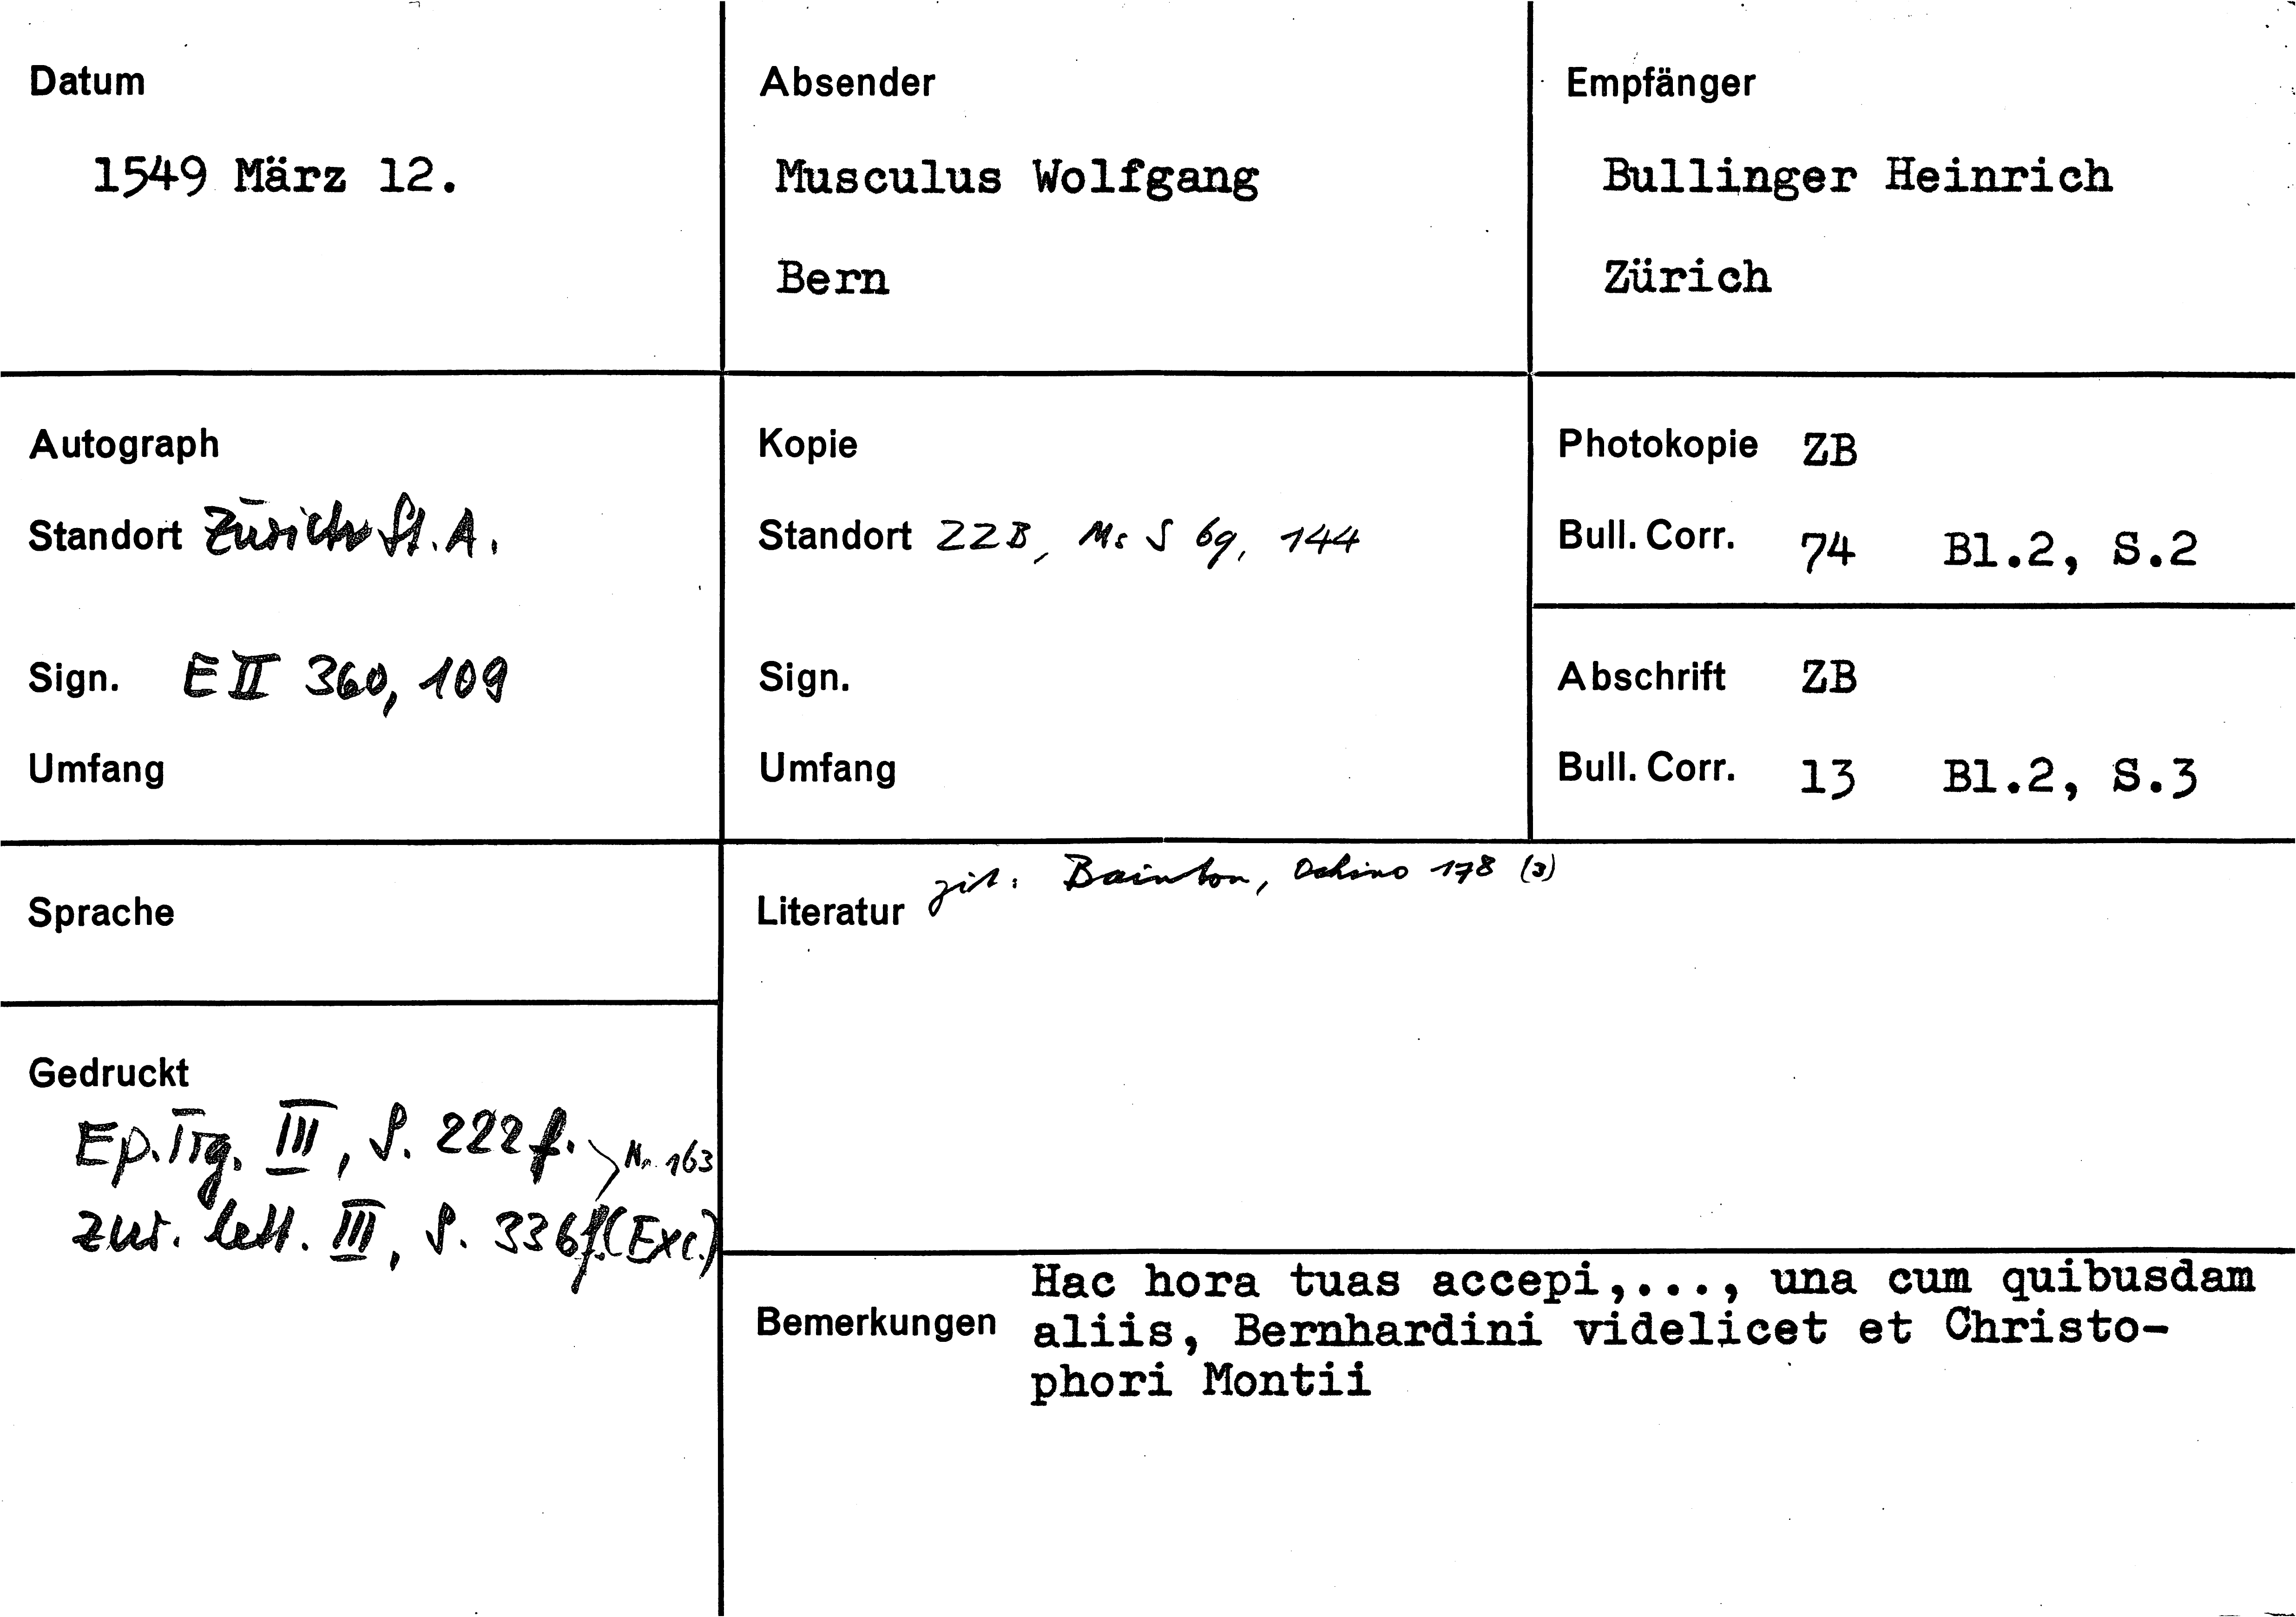 Datum
1549 März 12.
Absender
Musculus Wolfgang
Bern
Empfänger
Bullinger Heinrich
Zürich
Autograph
Standort Zürich St. A.
Sign. E II 360, 109
Umfang
Kopie
Standort ZZB, Ms S 69, 144
Sign.
Umfang
Photokopie ZB
Bull. Corr. 74 Bl.2, S.2
Abschrift ZB
Bull. Corr. 13 Bl.2, S.3
Sprache
Gedruckt
Ep. Tig. III, S. 222 f. Nr. 163
Zur. lett. III, S. 336f. (Exc.)
Literatur zit: Bainton, Ochino 178 (3)
Bemerkungen
Hac hora tuas accepi,..., una cum quibusdam
aliis, Bernhardini videlicet et Christo-
phori Montii